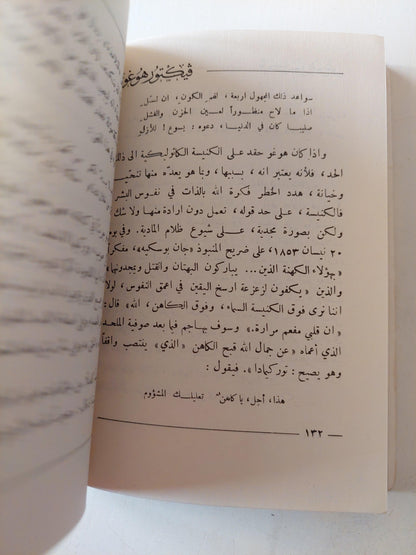 ڤيكتور هوغو
سواعد ذلك المجهول اربعة، لغز الكون، ان تسل
اذا ما لاح منظوراً لعين الحزن والفشل
صليبا كان في الدنيا، دعوه: يسوع! للأزل
واذا كان هوغو حقد على الكنيسة الكاثوليكية الى ذلك
الحد، فلأنه يعتبر انه، بسببها، وبما هو يعده منها
وخيانة، هدد الخطر فكرة الله بالذات في نفوس البشر
فالكنيسة، على حد قوله، تعمل دون ارادة منها ولا شك
ولكن بصورة مجدية، على شيوع ظلام المادية. وفي
٢٠ نيسان ١٨٥٣، على ضريح المنبوذ «جان بوسكيه»،
«هؤلاء الكهنة الذين... يباركون البهتان والقتل ويمجدونهما،
والذين «يكفون لزعزعة ارسخ اليقين في اعمق النفوس، لولا
اننا نرى فوق الكنيسة السماء، وفوق الكاهن، الله» قال:
«ان قلبي مفعم مرارة.» وسوف يهاجم فيما بعد صوفية الملحد
الذي أعماه «عن جمال الله قبح الكاهن «الذي» ينتصب واقفاً
وهو يصيح: توركيمادا». فيقول:
هذا، أجل، يا كاهن، تعليلك المشؤوم
١٣٢